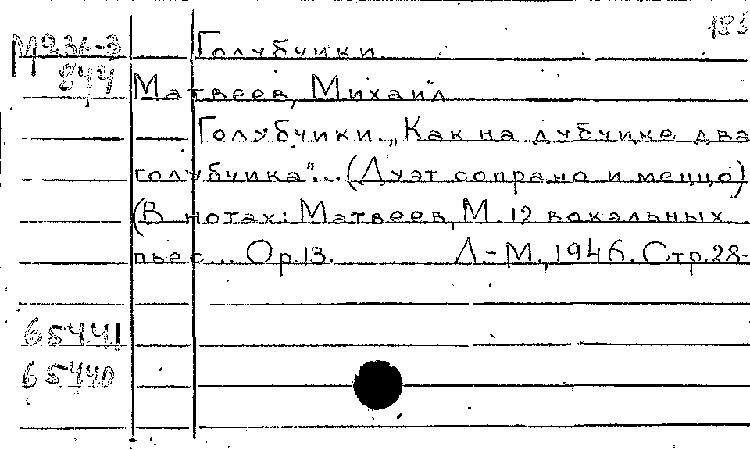 М 936-3 Голубчики 183
844 Матвеев, Михаил
Голубчики. „Как на дубчике два
голубчика"... (Дуэт сопрано и меццо)
(В нотах: Матвеев, М. 12 вокальных
пьес... Op.13. Л-М., 1946. Стр.28-
65441
65440